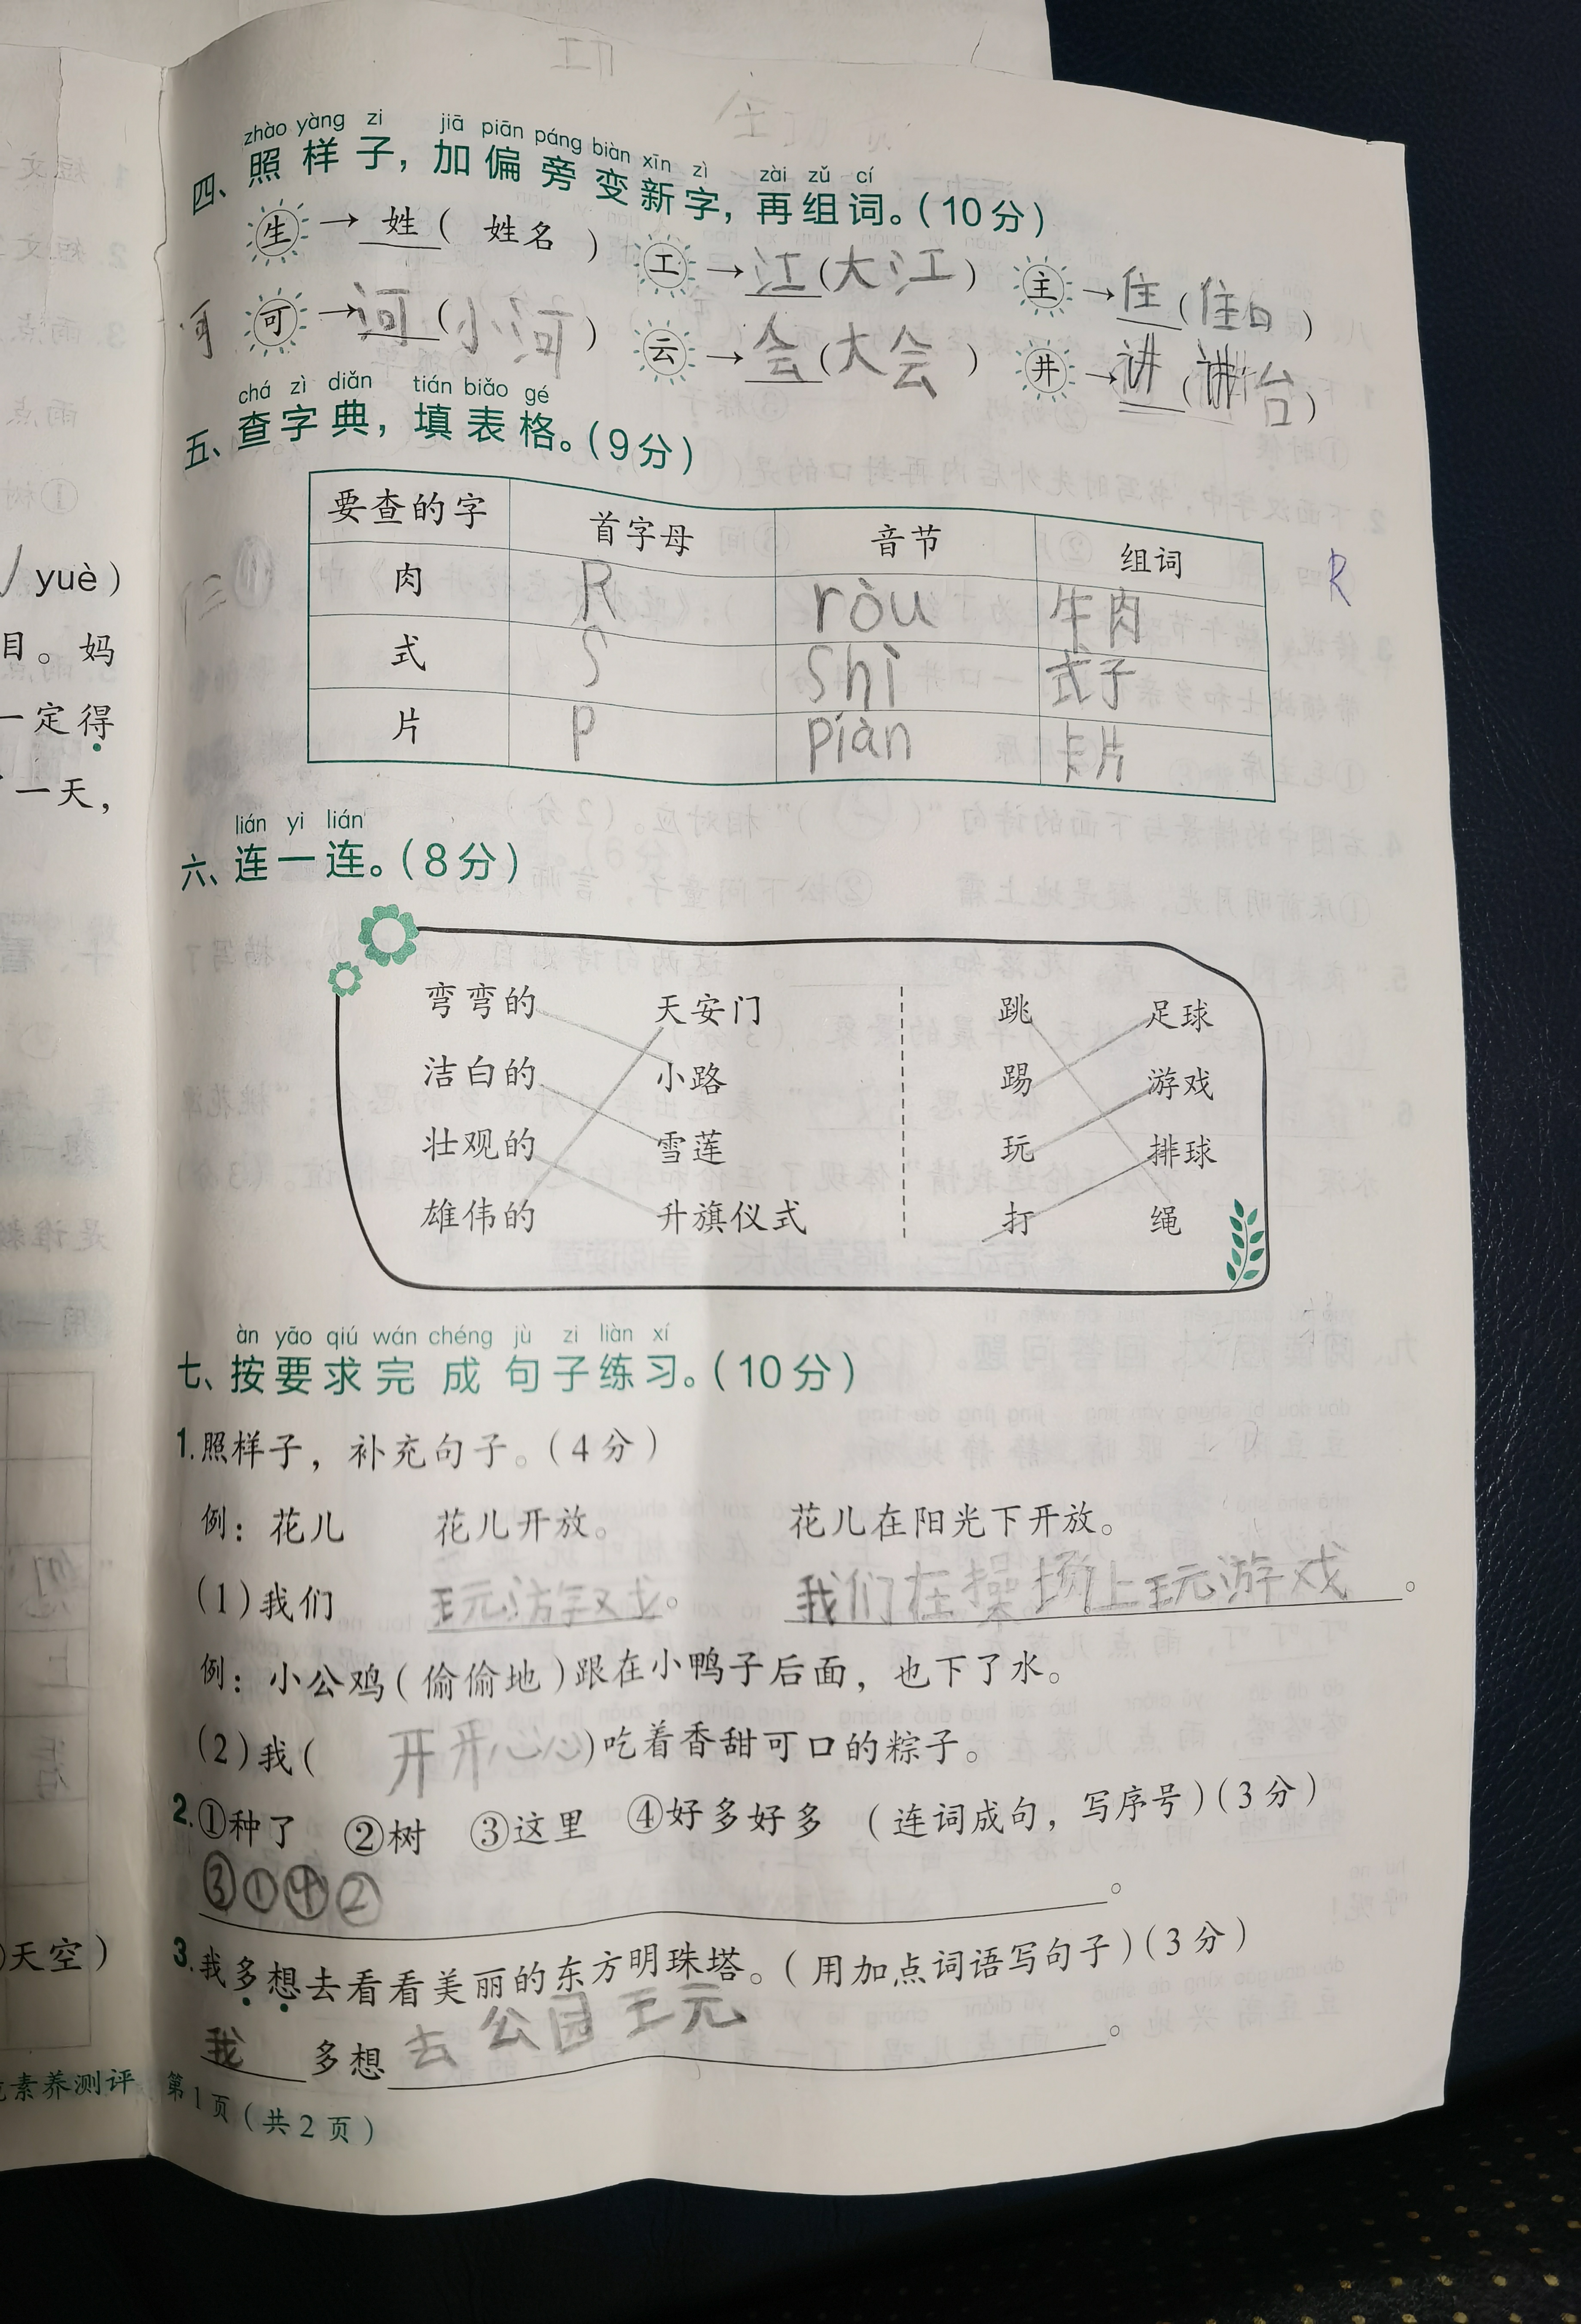 zhào yàng zi jiā piān páng biàn xīn zì zài zǔ cí
四、照样子，加偏旁变新字，再组词。(10分)
生→姓(姓名) 工→江(大江) 主→住(住)
可→河(小河) 云→会(大会) 井→讲(讲台)
chá zì diǎn tián biǎo gé
五、查字典，填表格。(9分)
要查的字 首字母 音节 组词
肉 R ròu 牛肉
式 S Shì 式子
片 P piàn 卡片
R
lián yi lián
六、连一连。(8分)
弯弯的 天安门 跳 足球
洁白的 小路 踢 游戏
壮观的 雪莲 玩 排球
雄伟的 升旗仪式 打 绳
àn yāo qiú wán chéng jù zi liàn xí
七、按要求完成句子练习。(10分)
1.照样子，补充句子。(4分)
例：花儿 花儿开放。 花儿在阳光下开放。
(1)我们 玩游戏。 我们在操场上玩游戏。
例：小公鸡(偷偷地)跟在小鸭子后面，也下了水。
(2)我(开开心心)吃着香甜可口的粽子。
2.①种了 ②树 ③这里 ④好多好多 (连词成句，写序号)(3分)
③①④②。
3.我多想去看看美丽的东方明珠塔。(用加点词语写句子)(3分)
我多想去公园玩。
第1页(共2页)
yuè)
目。妈
一定得
一天，
天空)
素养测评